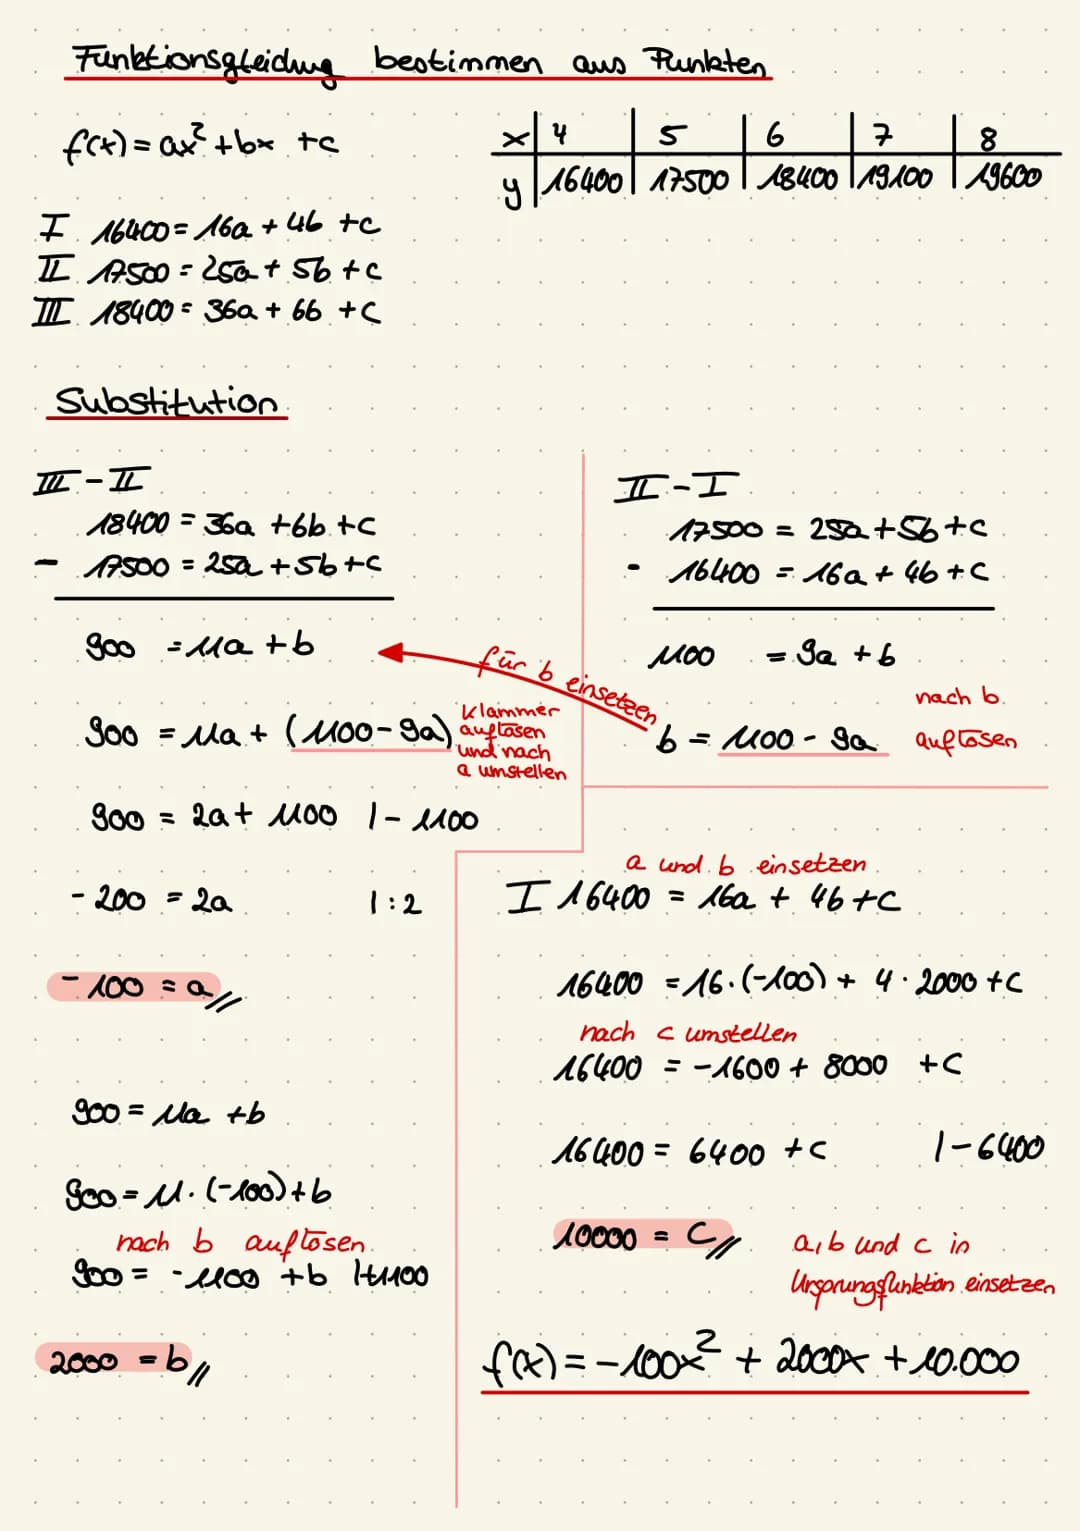 Funktionsgleichung bestimmen aus Punkten
f(x) = ax² + bx + c
x | 4 | 5 | 6 | 7 | 8
y | 16400 | 17500 | 18400 | 19100 | 19600
I 16400 = 16a + 4b + c
II 17500 = 25a + 5b + c
III 18400 = 36a + 6b + c
Substitution
III - II
18400 = 36a + 6b + c
- 17500 = 25a + 5b + c
900 = 11a + b
900 = 11a + (1100 - 9a)
Klammer
auflösen
und nach
a umstellen
900 = 2a + 1100 | - 1100
- 200 = 2a | : 2
- 100 = a
900 = 11a + b
900 = 11 · (-100) + b
nach b auflösen
900 = - 1100 + b | + 1100
2000 = b
II - I
17500 = 25a + 5b + c
- 16400 = 16a + 4b + c
1100 = 9a + b
für b einsetzen
b = 1100 - 9a
nach b
auflösen
a und b einsetzen
I 16400 = 16a + 4b + c
16400 = 16 · (-100) + 4 · 2000 + c
nach c umstellen
16400 = -1600 + 8000 + c
16400 = 6400 + c | - 6400
10000 = c
a, b und c in
Ursprungsfunktion einsetzen
f(x) = -100x² + 2000x + 10.000